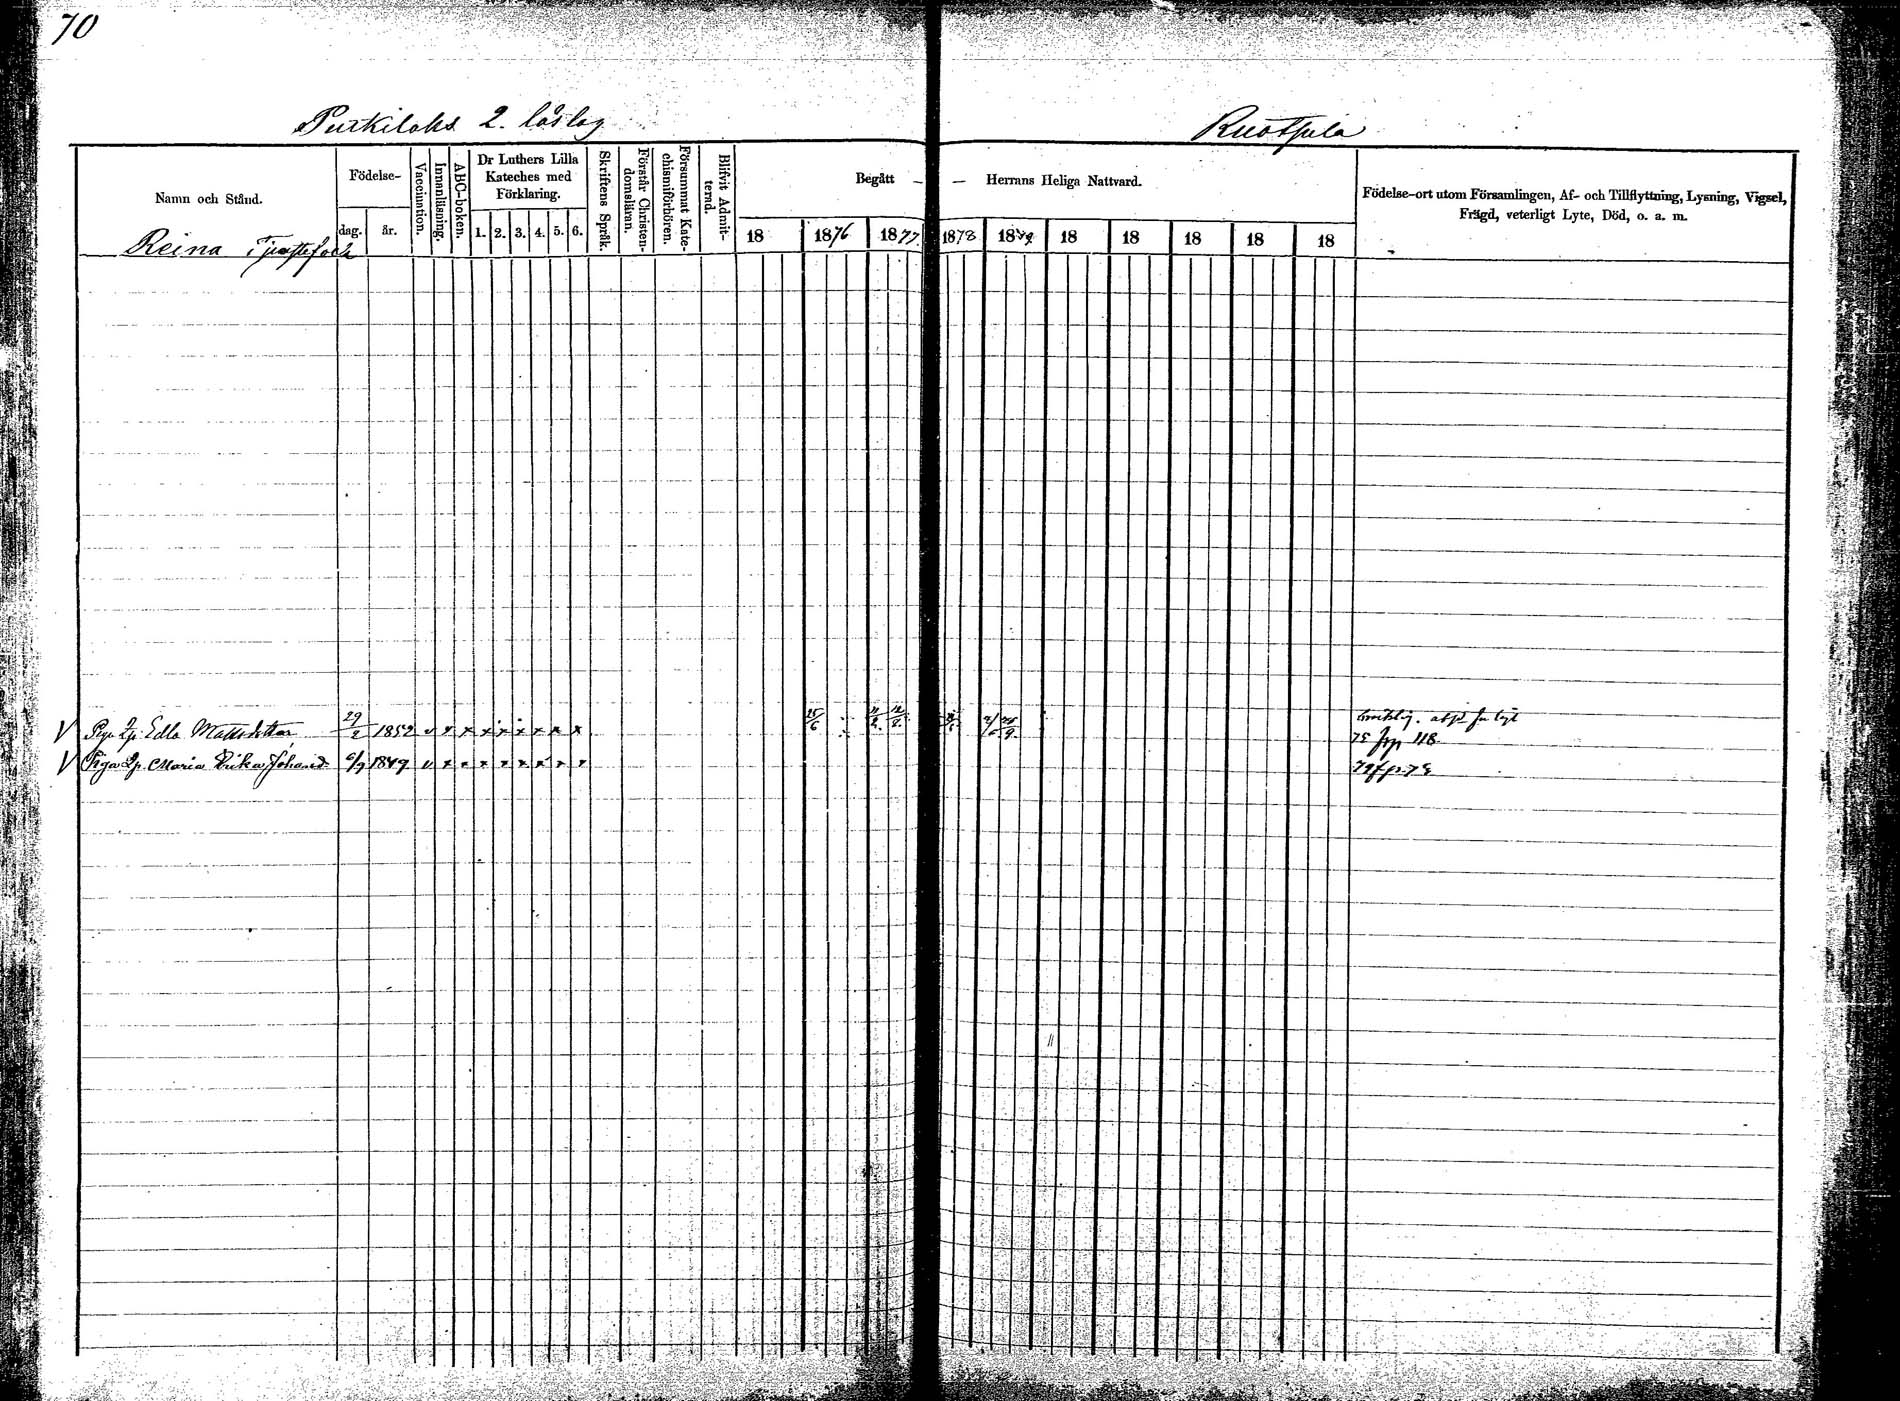 70
Purkiloks 2. låslag
Ruotsula
Namn och Stånd.
Födelse-
dag.
år.
Vaccination.
Innanläsning.
ABC-boken.
Dr Luthers Lilla
Kateches med
Förklaring.
1. 2. 3. 4. 5. 6.
Skriftens Språk.
Förstår Christen-
domsläran.
Försummat Kate-
chismiförhören.
Blifvit Admit-
terad.
Begått — — Herrans Heliga Nattvard.
18 1876 1877 1878 1879 18 18 18 18 18
Födelse-ort utom Församlingen, Af- och Tillflyttning, Lysning, Vigsel,
Frägd, veterligt Lyte, Död, o. a. m.
Reina
V Pig. 2p. Edla Mattsdotter 29/2 1852 v x x x x x x x x 25/6
75 frp 118
V Piga 2p. Maria Erika Johansd. 6/9 1849 v x x x x x x x x
79 f p. 78